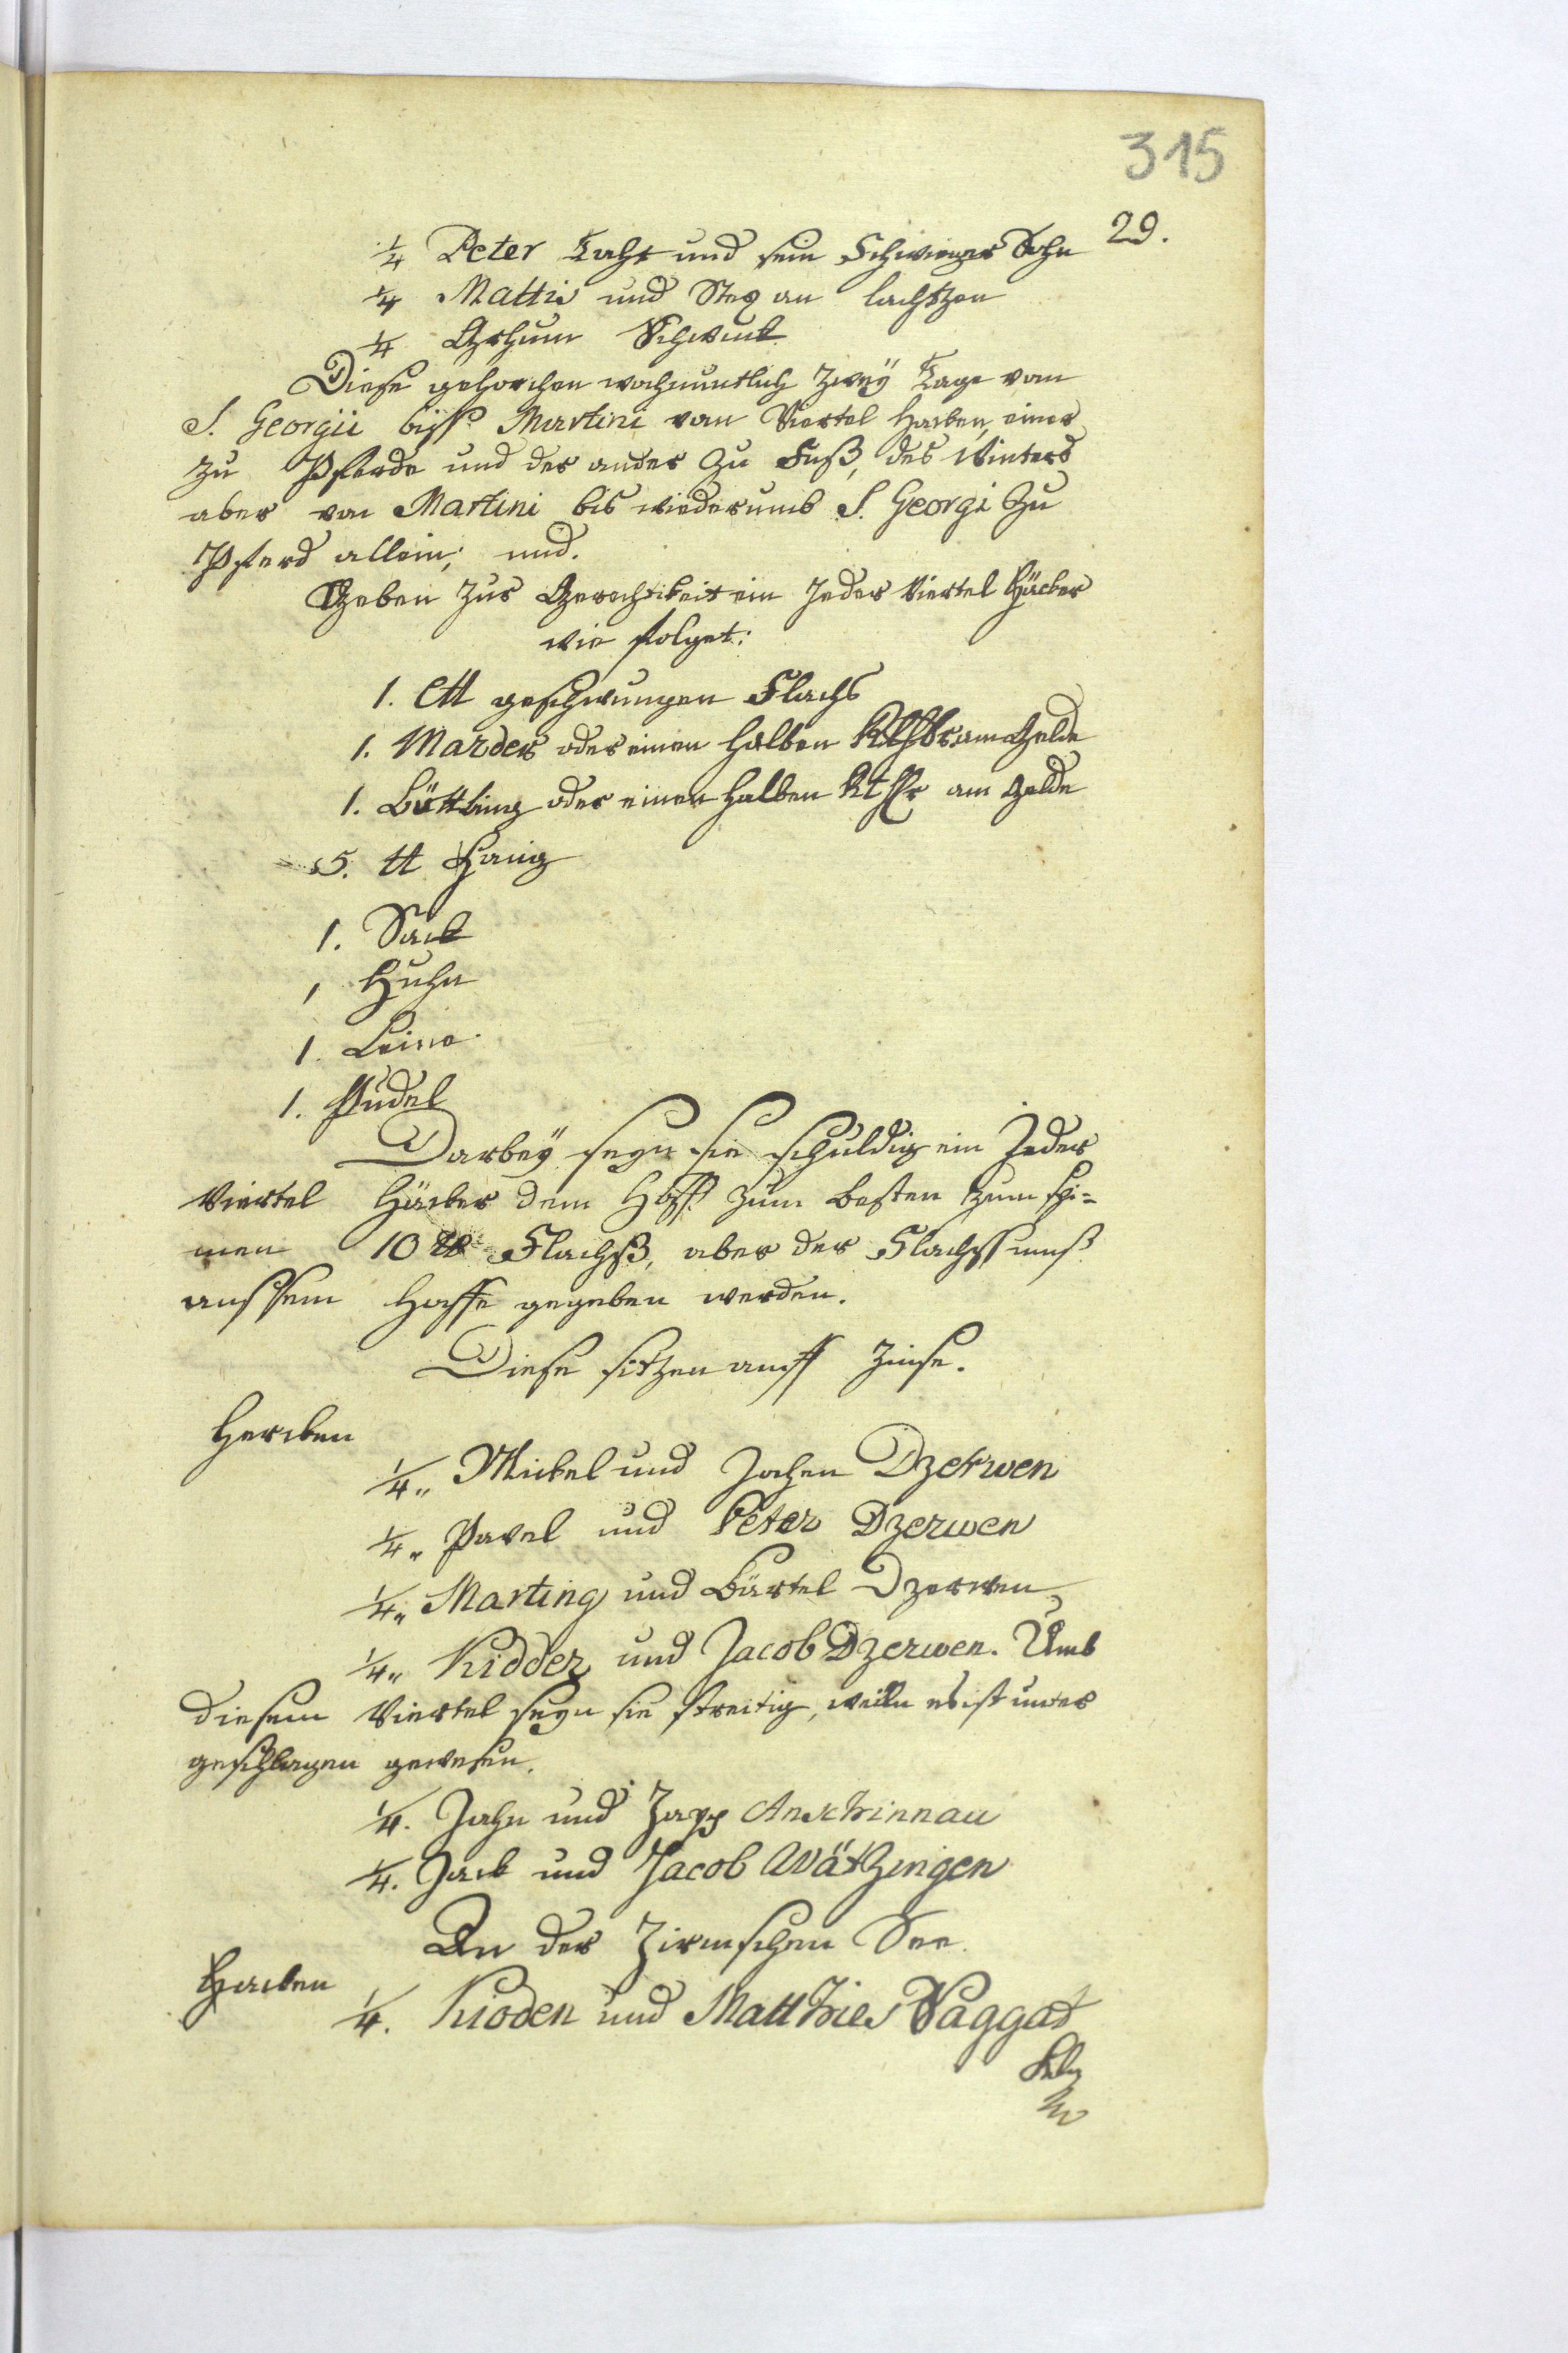 315
29.
1/4 Peter Taht und sein Schwieger Sohn
1/4 Mattis und Step an lachtzen
1/4 Grhum Schwint
Diese gehorchen wochenntlich zweÿ Tage vom
S. Georgii biss Martini vom Viertel Hacken, einer
zu Pferde und der ander zu Fuß, des Winters
aber von Martini bis wiederumb S. Georgi zu
Pferd allein, und.
Geben zur Gerechtikeit ein Jeder Viertel Häcker
wie folget:
1. Ltt geschwungen Flachs
1. Marder oder einen halben Rthlr am Gelde
1. Böttling oder einen halben Rthlr am Gelde
5. tt Hanig
1. Sack
1 Huhn
1. Leine
1. Pudel
Darbeÿ seyn sie schuldig ein Jeder
Viertel Häcker dem Hoff zum besten zum spi=
nnen 10 tt Flachß, aber der Flachss muß
auss dem Hoffe gegeben werden.
Diese sitzen auff Zinse.
Hacken
1/4 „ Mickel und Jahn Dzerwen
1/4 „ Pavel und Peter Dzerwen
1/4 „ Marting und Bärtel Dzerwen
1/4 „ Kidder und Jacob Dzerwen. Umb
diesem Viertel seyn sie streitig, weiln es ist unter
geschlagen gewesen.
1/4. Jahn und Japp Anschinnau
1/4. Jack und Jacob Wätzingen
An der Zirmschen See.
Hacken
1/4. Kioden und Matthies Paggast